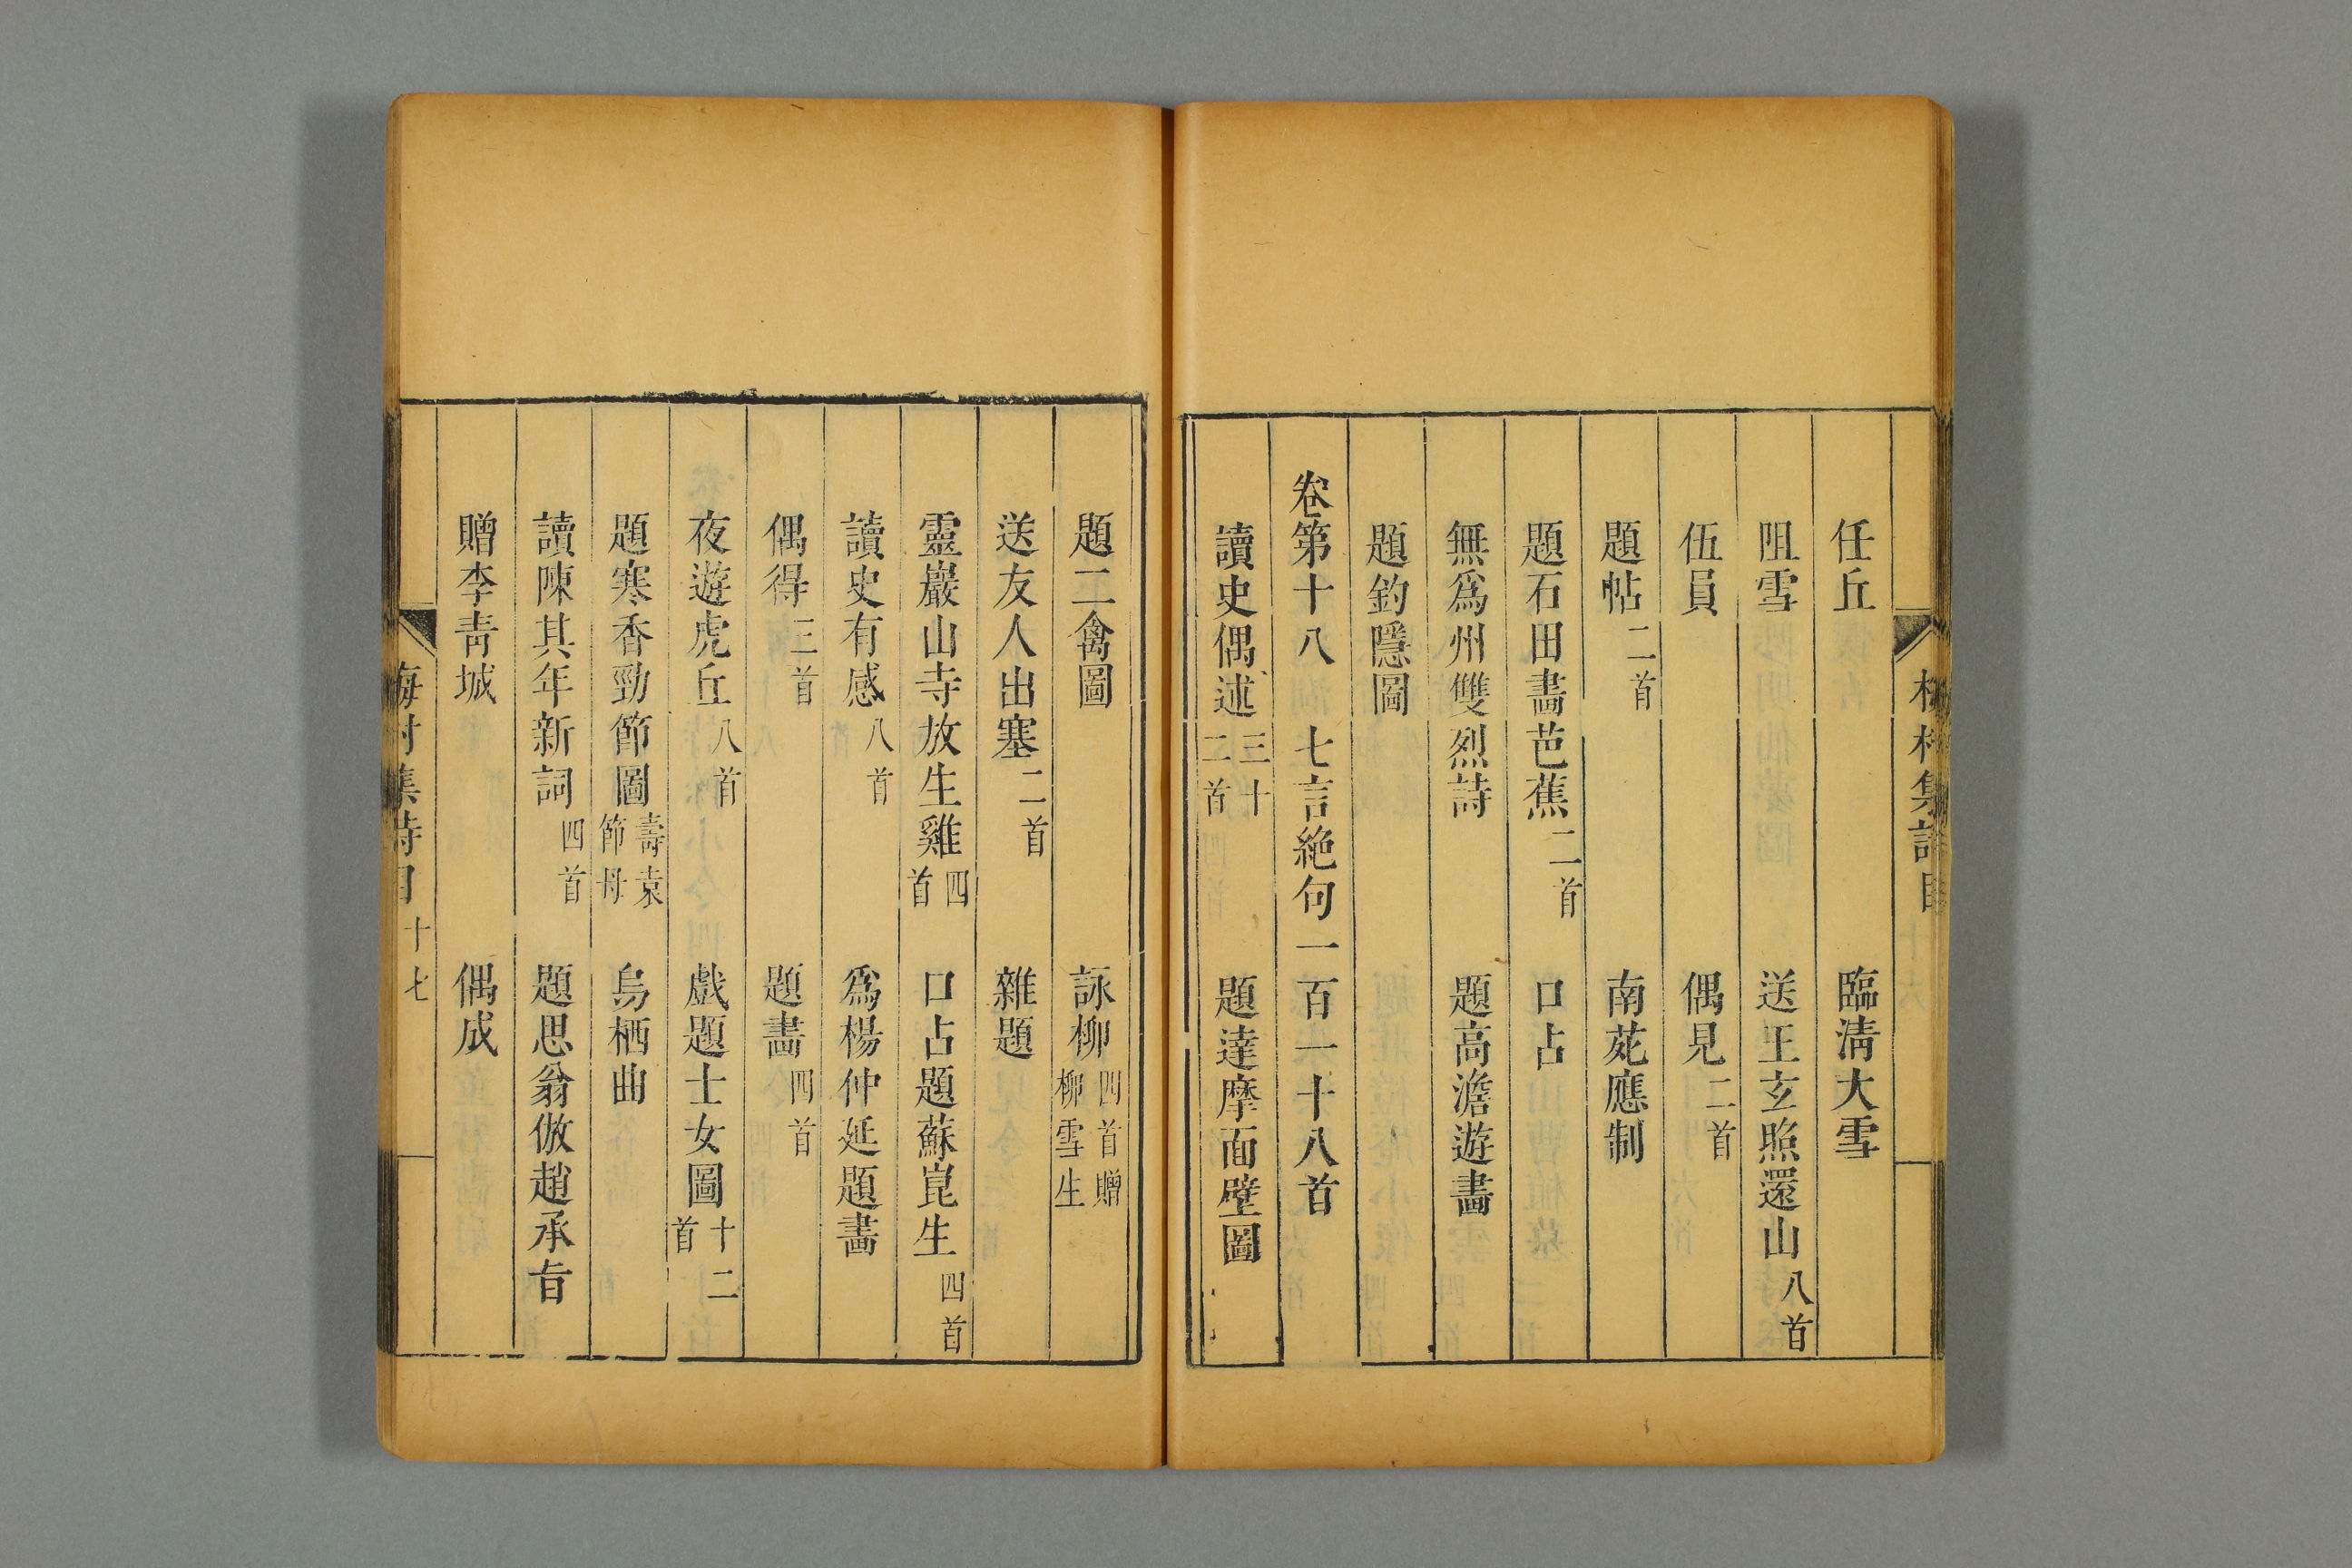 任丘　臨清大雪
阻雪　送王玄照還山八首
伍員　偶見二首
題帖二首　南苑應制
題石田畫芭蕉二首　口占
無爲州雙烈詩　題高澹遊畫
題釣隱圖
卷第十八　七言絶句一百一十八首
讀史偶述三十二首　題達摩面壁圖
題二禽圖　詠柳四首贈柳雪生
送友人出塞二首　雜題
靈巖山寺放生雞四首　口占題蘇崑生四首
讀史有感八首　爲楊仲延題畫
偶得三首　題畫四首
夜遊虎丘八首　戲題士女圖十二首
題寒香勁節圖壽袁節母　烏栖曲
讀陳其年新詞四首　題思翁倣趙承旨
贈李靑城　偶成
梅村集詩目　十七